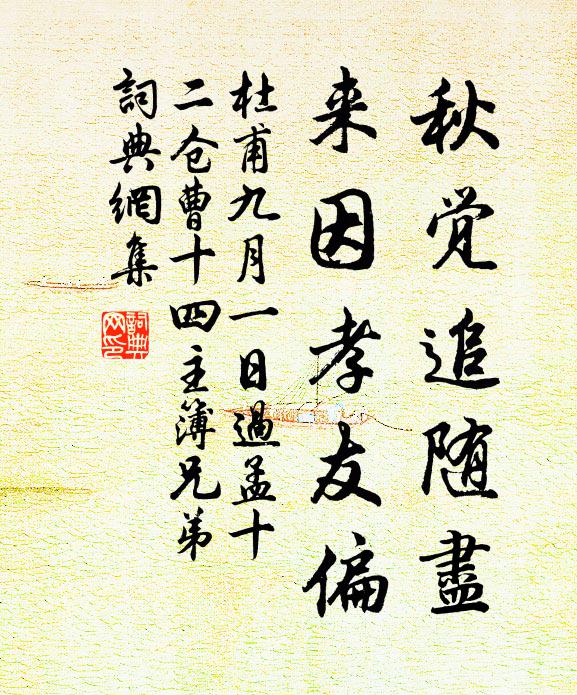 秋觉追随盡
来因孝友偏
杜甫九月一日過孟十
二仓曹十四主簿兄弟
詞典網集
詞典网印